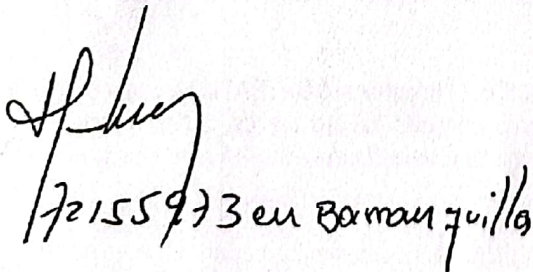 72155973 en Barranquilla